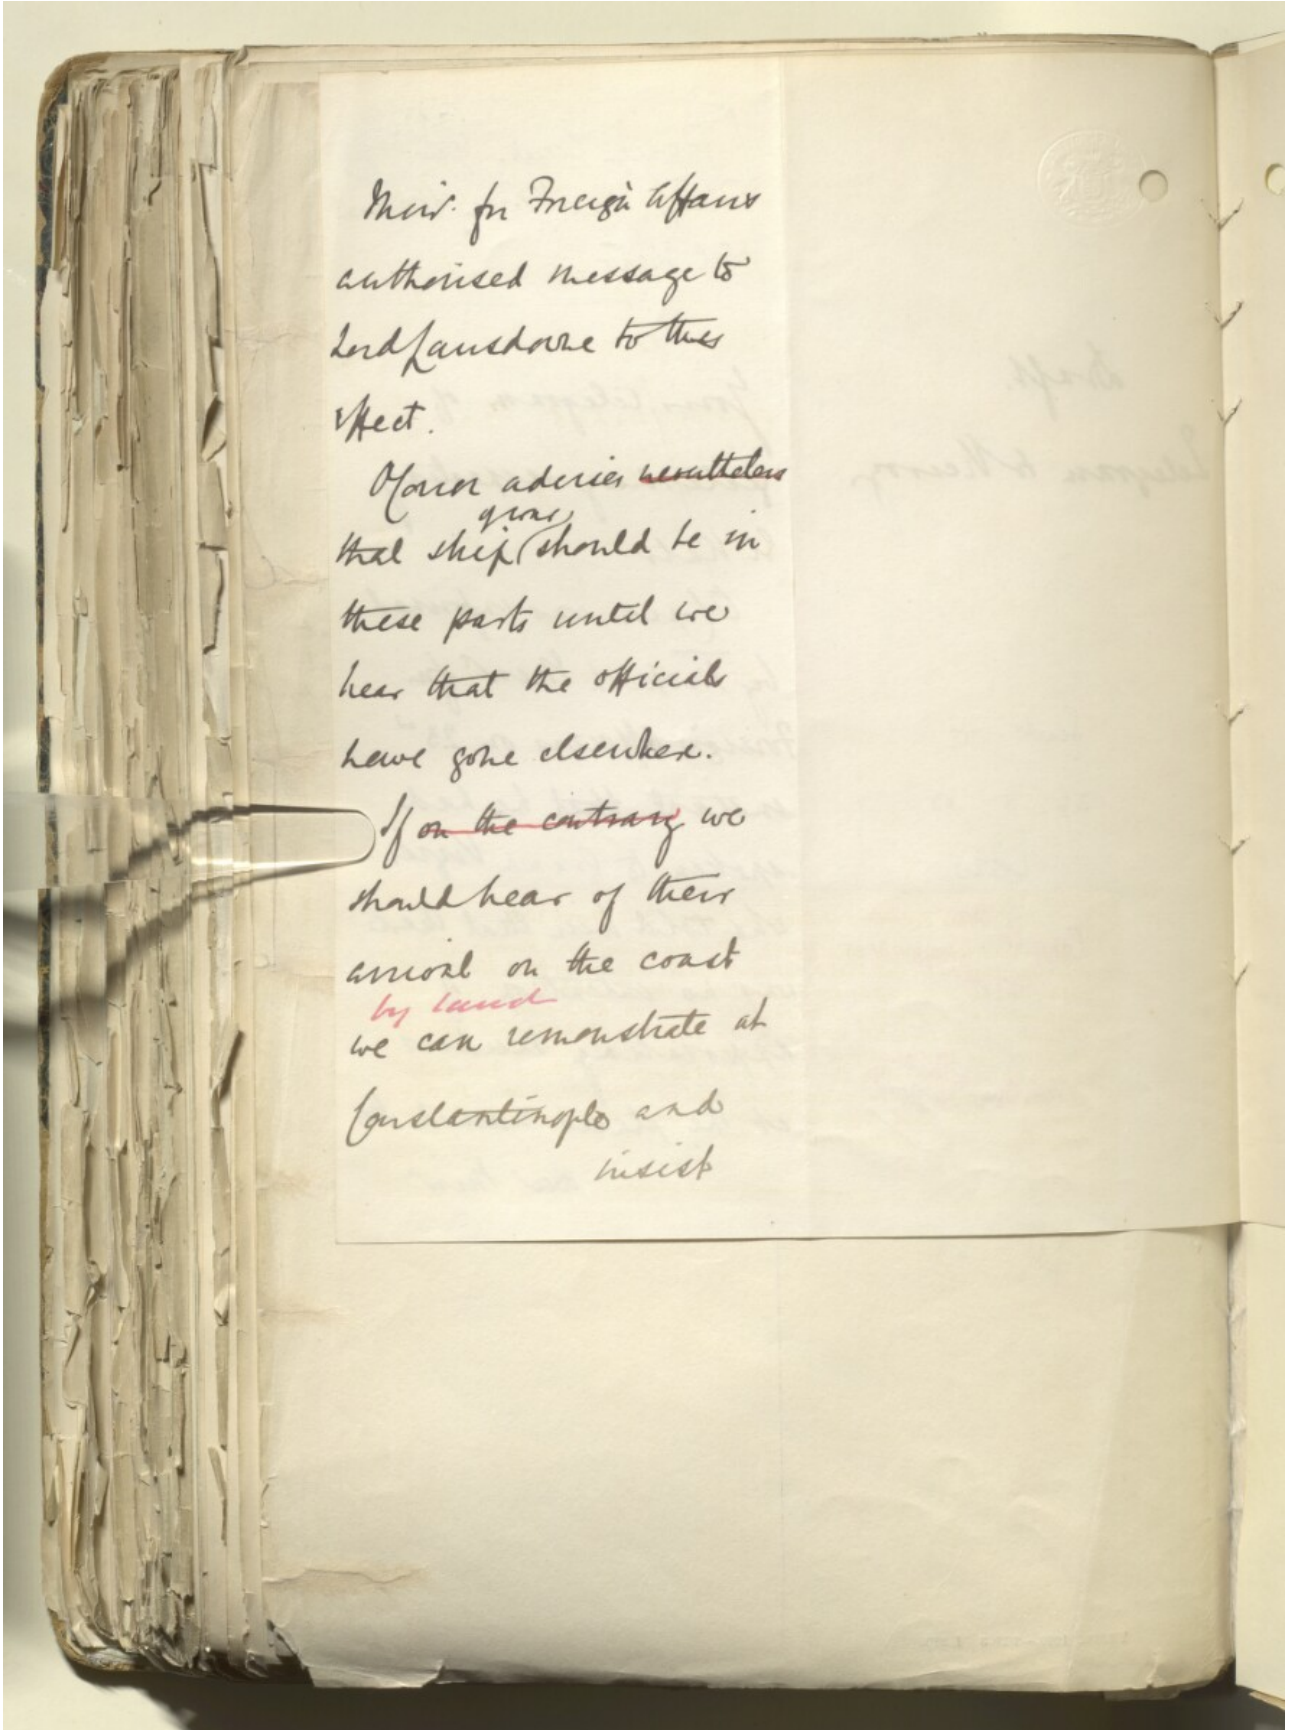 Min. for Foreign Affairs
authorised message to
Lord Lansdowne to this
effect.
O'Conor advises nevertheless
ours
that ship should be in
these parts until we
hear that the officials
have gone elsewhere.
If on the contrary we
should hear of their
arrival on the coast
by land
we can remonstrate at
Constantinople and
insist